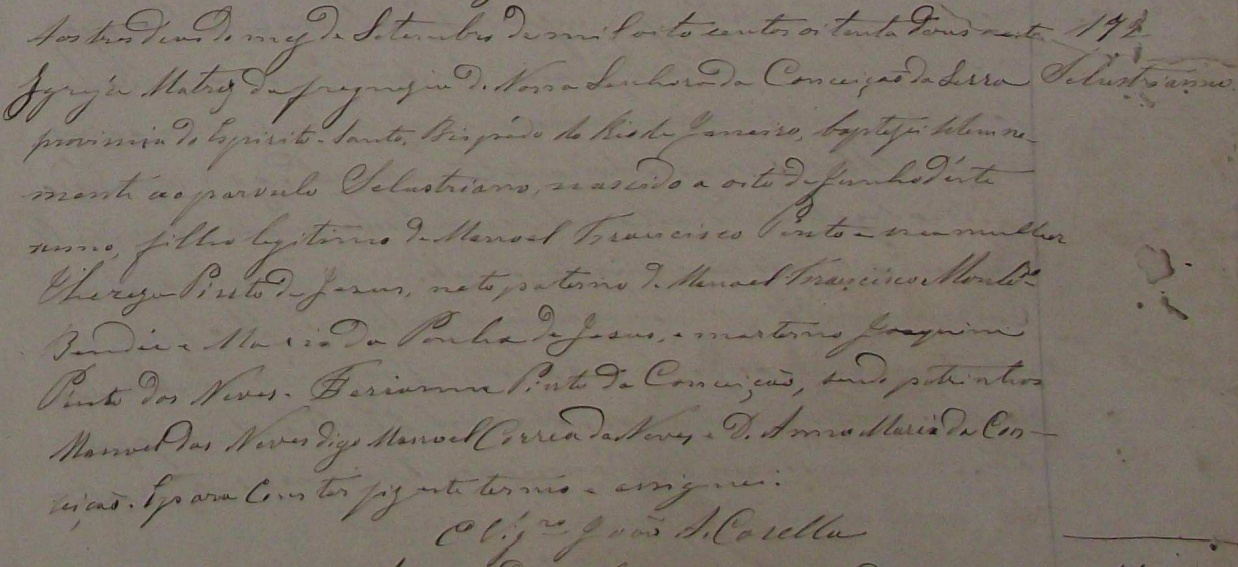 Aos tres dias do mez de Setembro de mil oito centos oitenta e dous nesta 172
Igreja Matriz da freguezia de Nossa Senhora da Conceição da Serra Selustriano
provincia do Espirito-Santo, Bispado do Rio de Janeiro, baptizei solemne-
mente ao parvulo Selustriano, nascido a oito de Junho d'este
anno, filho legitimo de Manoel Francisco Pinto e sua mulher
Thereza Pinto de Jesus, neto paterno de Manoel Francisco
e Maria da Penha de Jesus, e materno Joaquim
Pinto das Neves e Pinto da Conceição, sendo padrinhos
Manoel das Neves digo Manoel Correa das Neves e D. Anna Maria da Con-
ceição. E para constar fiz este termo e assignei.
O Vigrº João